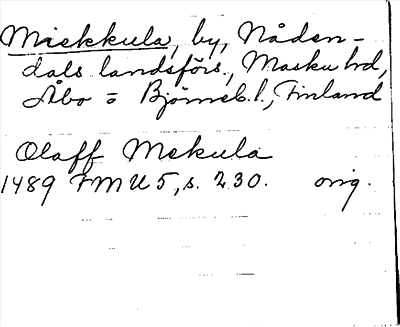 Miekkula, by, Nåden-
dals landsförs., Masku hd,
Åbo = Björneb. l., Finland
Olaff Mekula
1489 FMU 5, s. 230. orig.